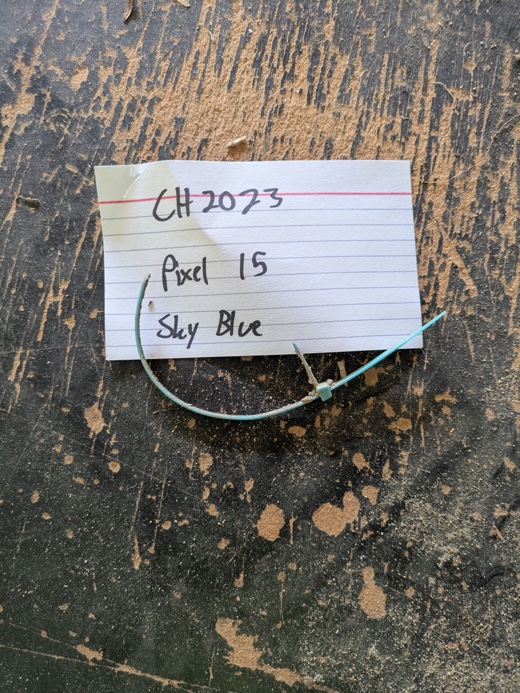 CH 2023
Pixel 15
Sky Blue